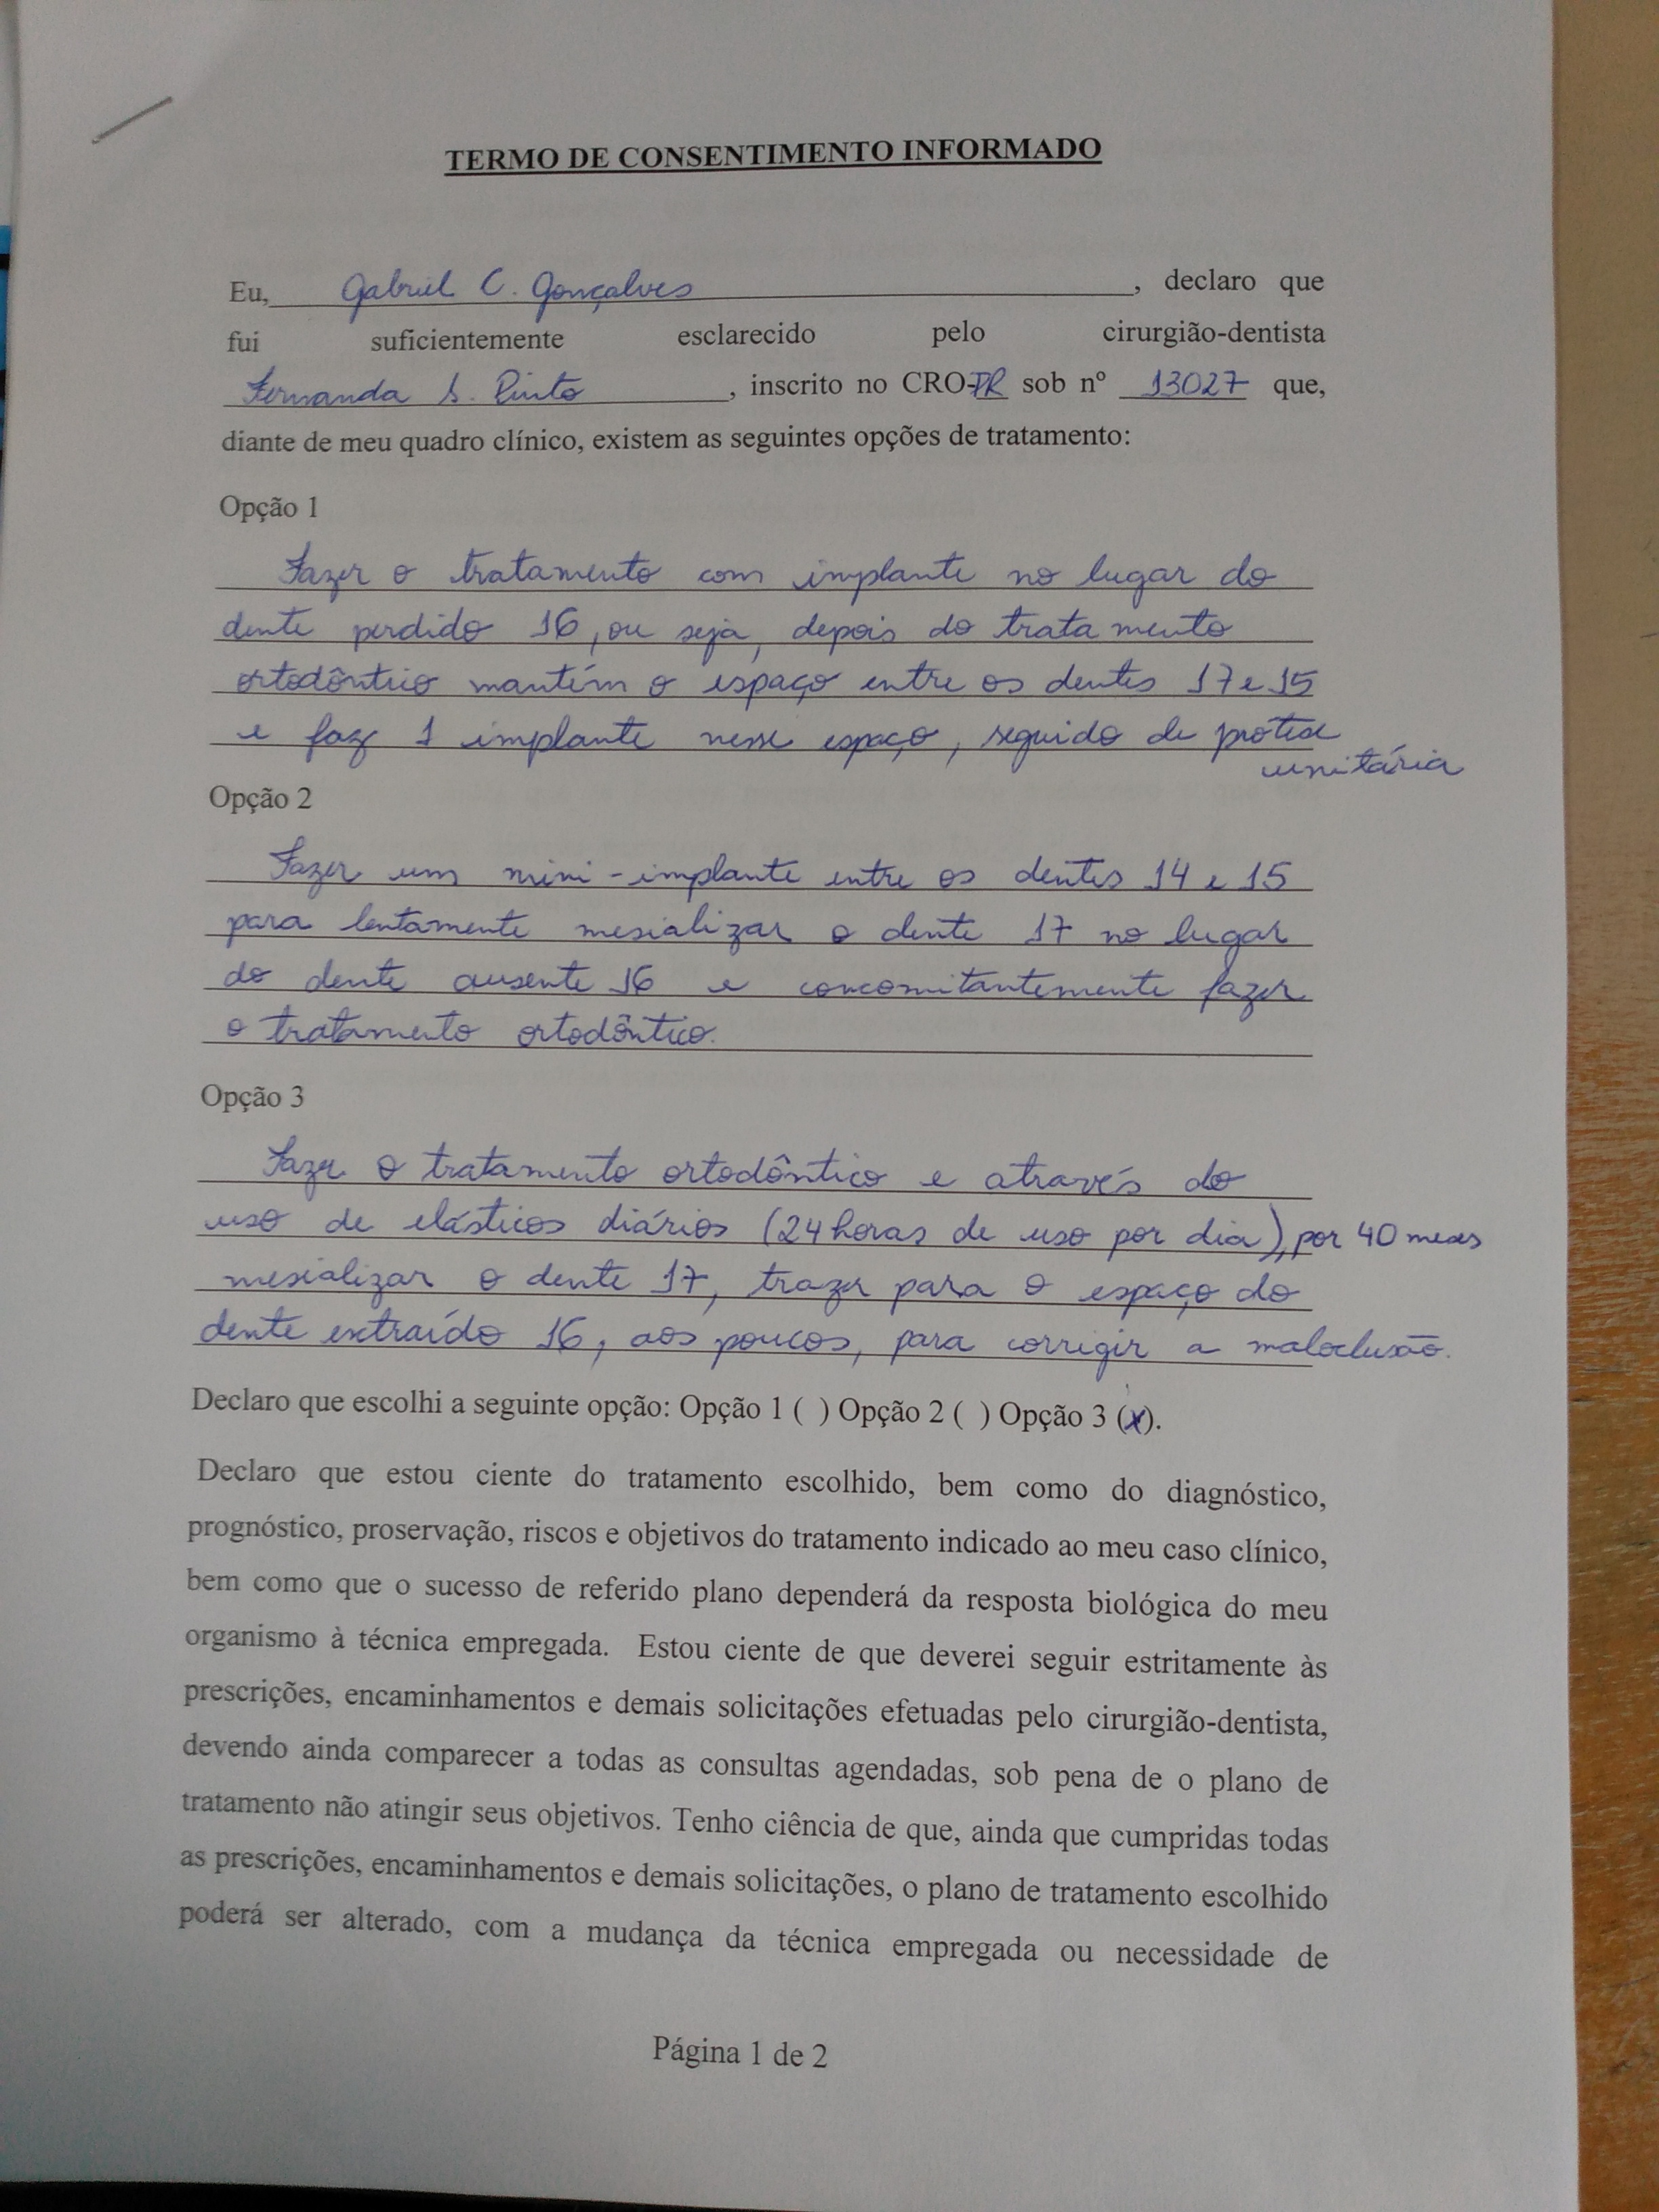 TERMO DE CONSENTIMENTO INFORMADO
Eu, Gabriel C. Gonçalves, declaro que
fui suficientemente esclarecido pelo cirurgião-dentista
Fernanda S. Pinto, inscrito no CRO-PR sob nº 13027 que,
diante de meu quadro clínico, existem as seguintes opções de tratamento:
Opção 1
Fazer o tratamento com implante no lugar do
dente perdido 16, ou seja, depois do tratamento
ortodôntico mantém o espaço entre os dentes 17 e 15
e faz 1 implante nesse espaço, seguido de prótese
unitária
Opção 2
Fazer um mini-implante entre os dentes 14 e 15
para lentamente mesializar o dente 17 no lugar
do dente ausente 16 e concomitantemente fazer
o tratamento ortodôntico.
Opção 3
Fazer o tratamento ortodôntico e através do
uso de elásticos diários (24 horas de uso por dia), por 40 meses
mesializar o dente 17, trazer para o espaço do
dente extraído 16, aos poucos, para corrigir a maloclusão.
Declaro que escolhi a seguinte opção: Opção 1 ( ) Opção 2 ( ) Opção 3 (x).
Declaro que estou ciente do tratamento escolhido, bem como do diagnóstico,
prognóstico, proservação, riscos e objetivos do tratamento indicado ao meu caso clínico,
bem como que o sucesso de referido plano dependerá da resposta biológica do meu
organismo à técnica empregada. Estou ciente de que deverei seguir estritamente às
prescrições, encaminhamentos e demais solicitações efetuadas pelo cirurgião-dentista,
devendo ainda comparecer a todas as consultas agendadas, sob pena de o plano de
tratamento não atingir seus objetivos. Tenho ciência de que, ainda que cumpridas todas
as prescrições, encaminhamentos e demais solicitações, o plano de tratamento escolhido
poderá ser alterado, com a mudança da técnica empregada ou necessidade de
Página 1 de 2